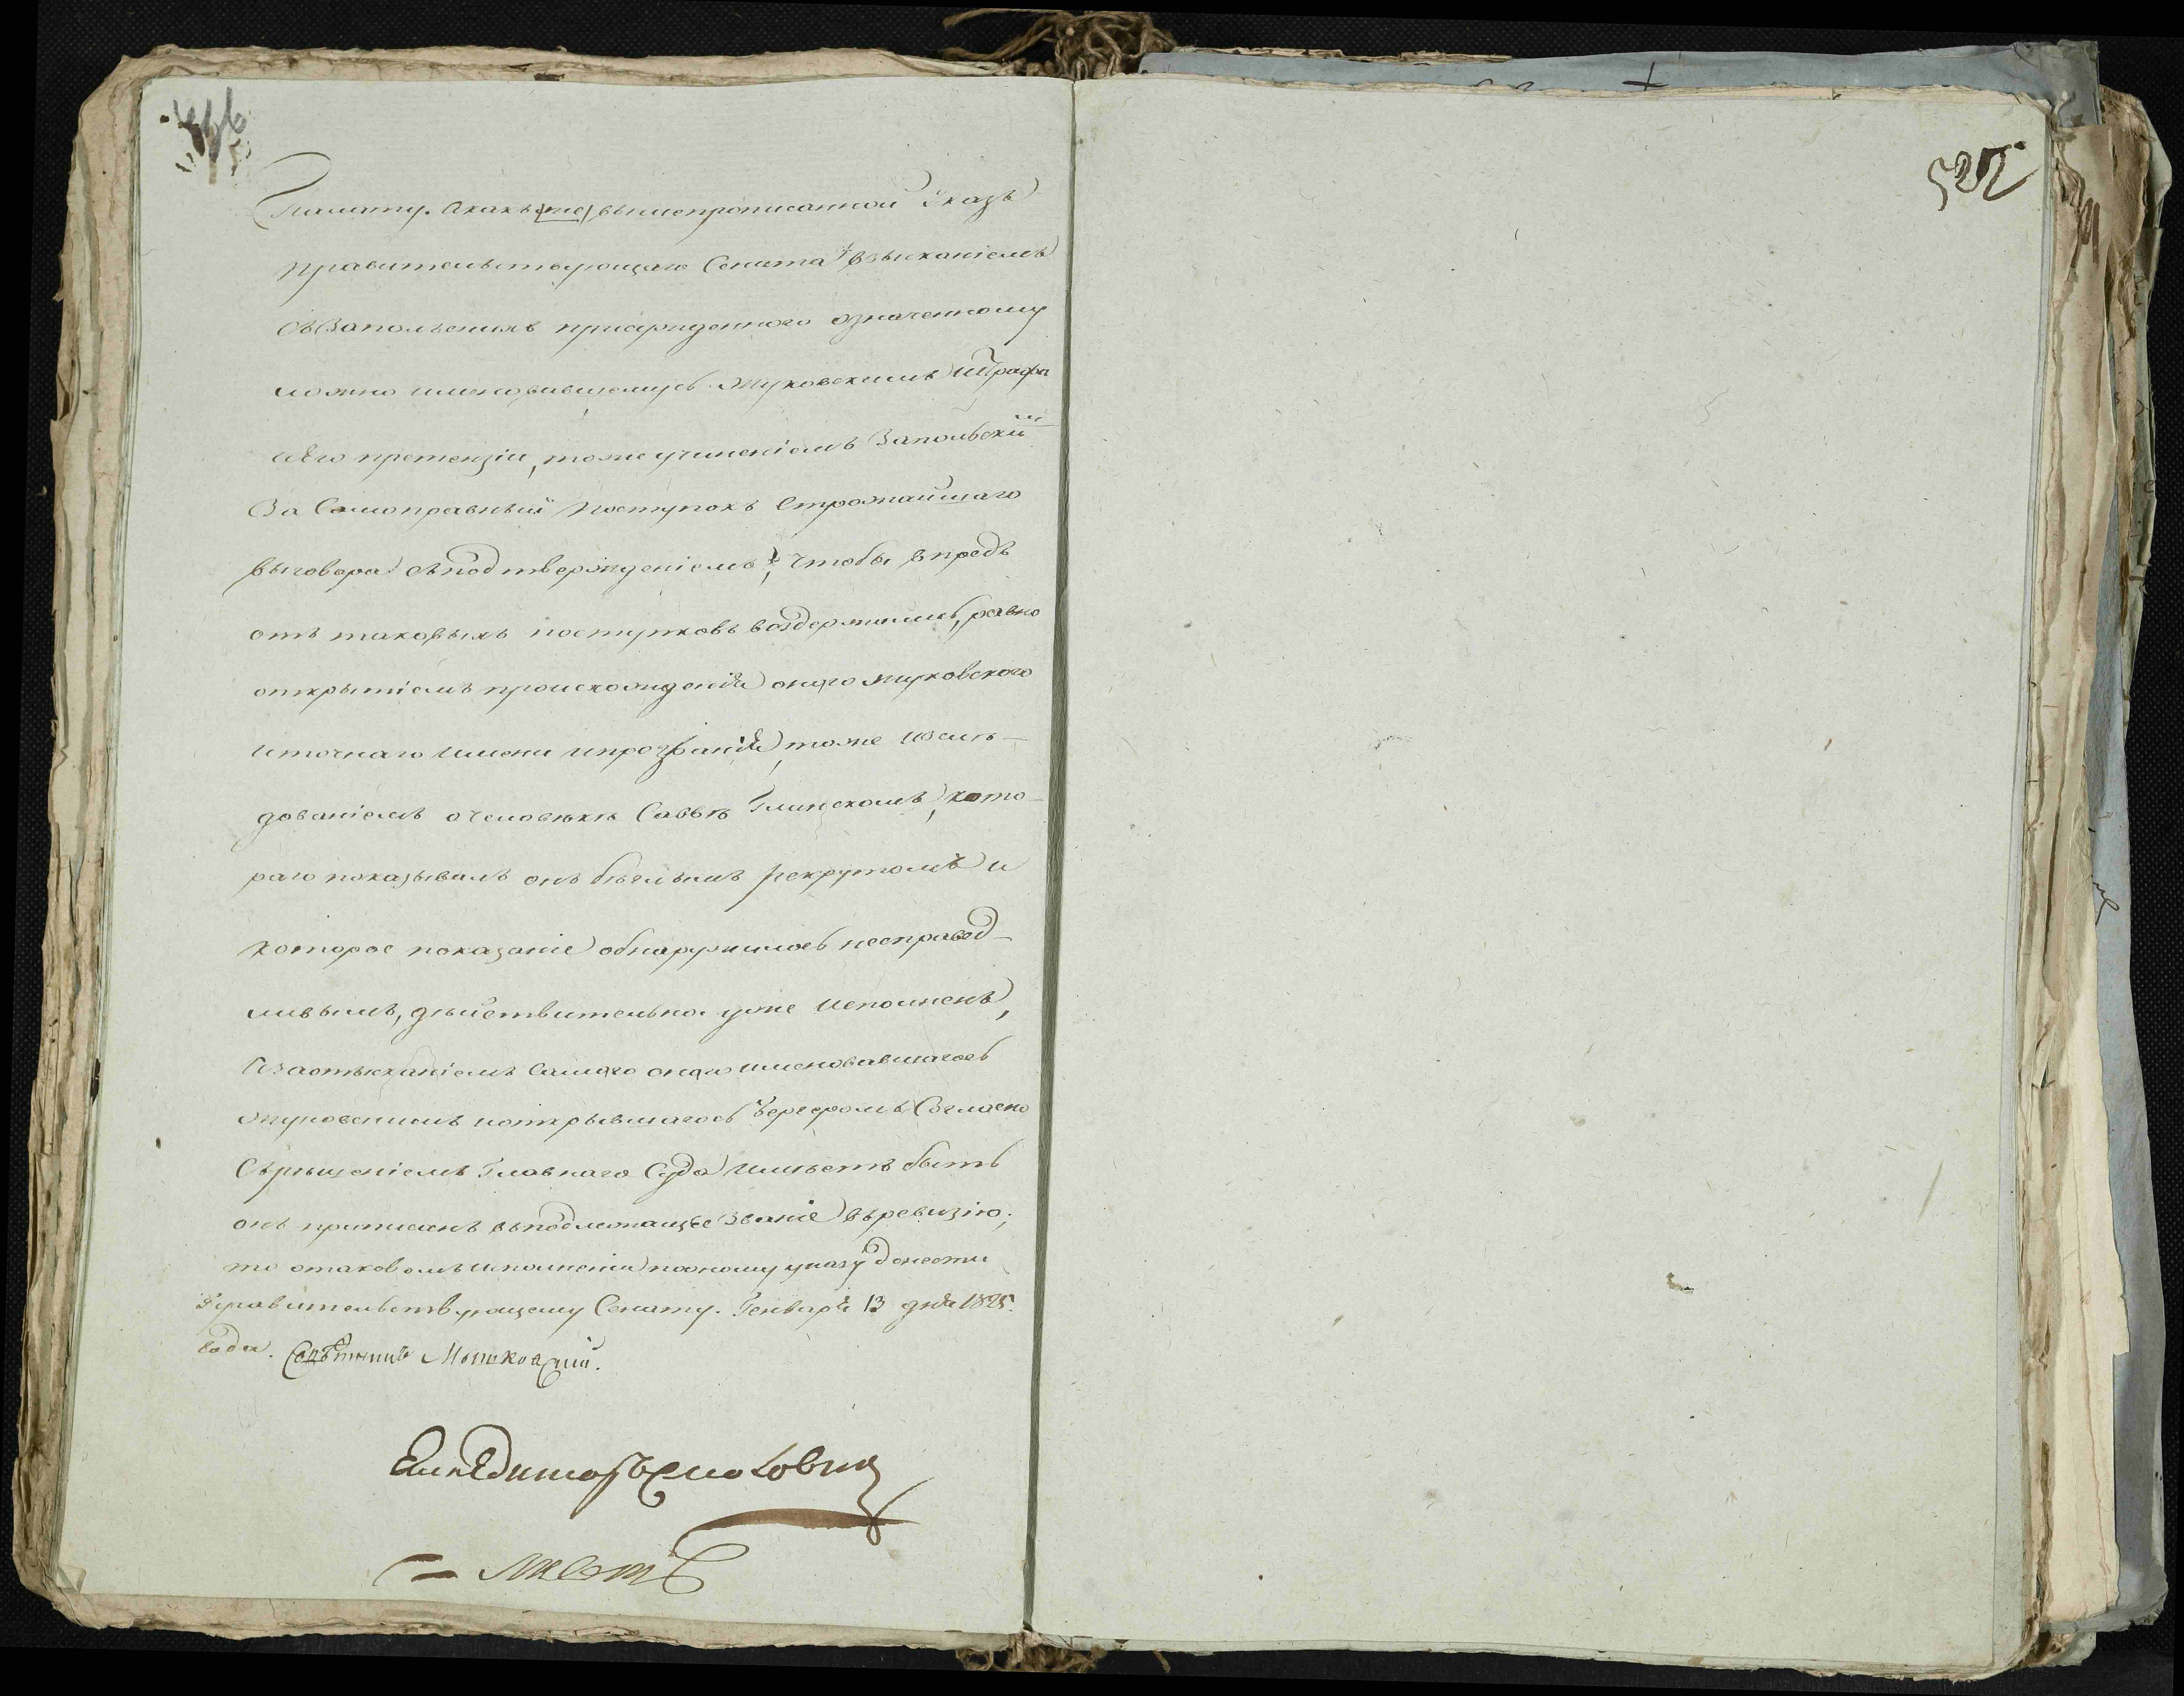 Палату. А какъ |не| вышепрописанной Указъ
правительствующаго Сената взысканіемъ
съ Запольскихъ присужденного означенному
ложно именовавшемусь Жуковскимъ Штрафа
иего претензіи, тоже учиненіемъ Запольскій
За Самоправный поступокъ Строжайшаго
выговора съподтвержденіемъ, Чтобы впредь
отъ таковыхъ поступковъ воздержались, равно
открытіемъ происхожденія онаго Жуковского
иточнаго имени ипрозванія, тоже изслѣ-
дованіемъ очеловѣкѣ Саввѣ Глинскомъ, кото-
раго показывалъ онъ бѣглымъ рекрутомъ и
которое показаніе обнаружилось несправед-
ливымъ, дѣйствительно уже исполненъ,
Азаотысканіемъ Самаго онаго именовавшагось
Жуковскимъ иоткрывшагось Согласно
Сърѣшеніемъ Главнаго Суда имѣетъ быть
онъ приписанъ въподлежащѣе Званіе въревизію;
то отаковомъ исполненіи поономy указу донести
Правительствующему Сенату. Генваря 13 дня 1825.
года. Совѣтникъ
525.